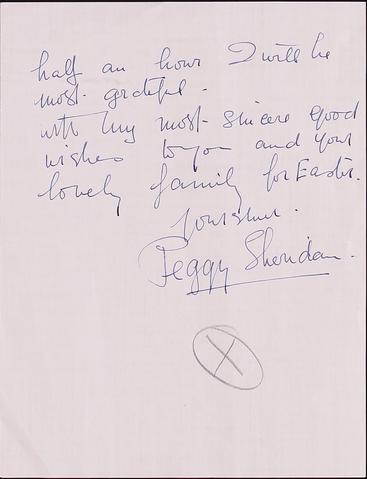 half an hour I will be
most grateful.
with my most sincere good
wishes to you and your
lovely family for Easter.
Yours sincerely.
Peggy Sheridan.
X